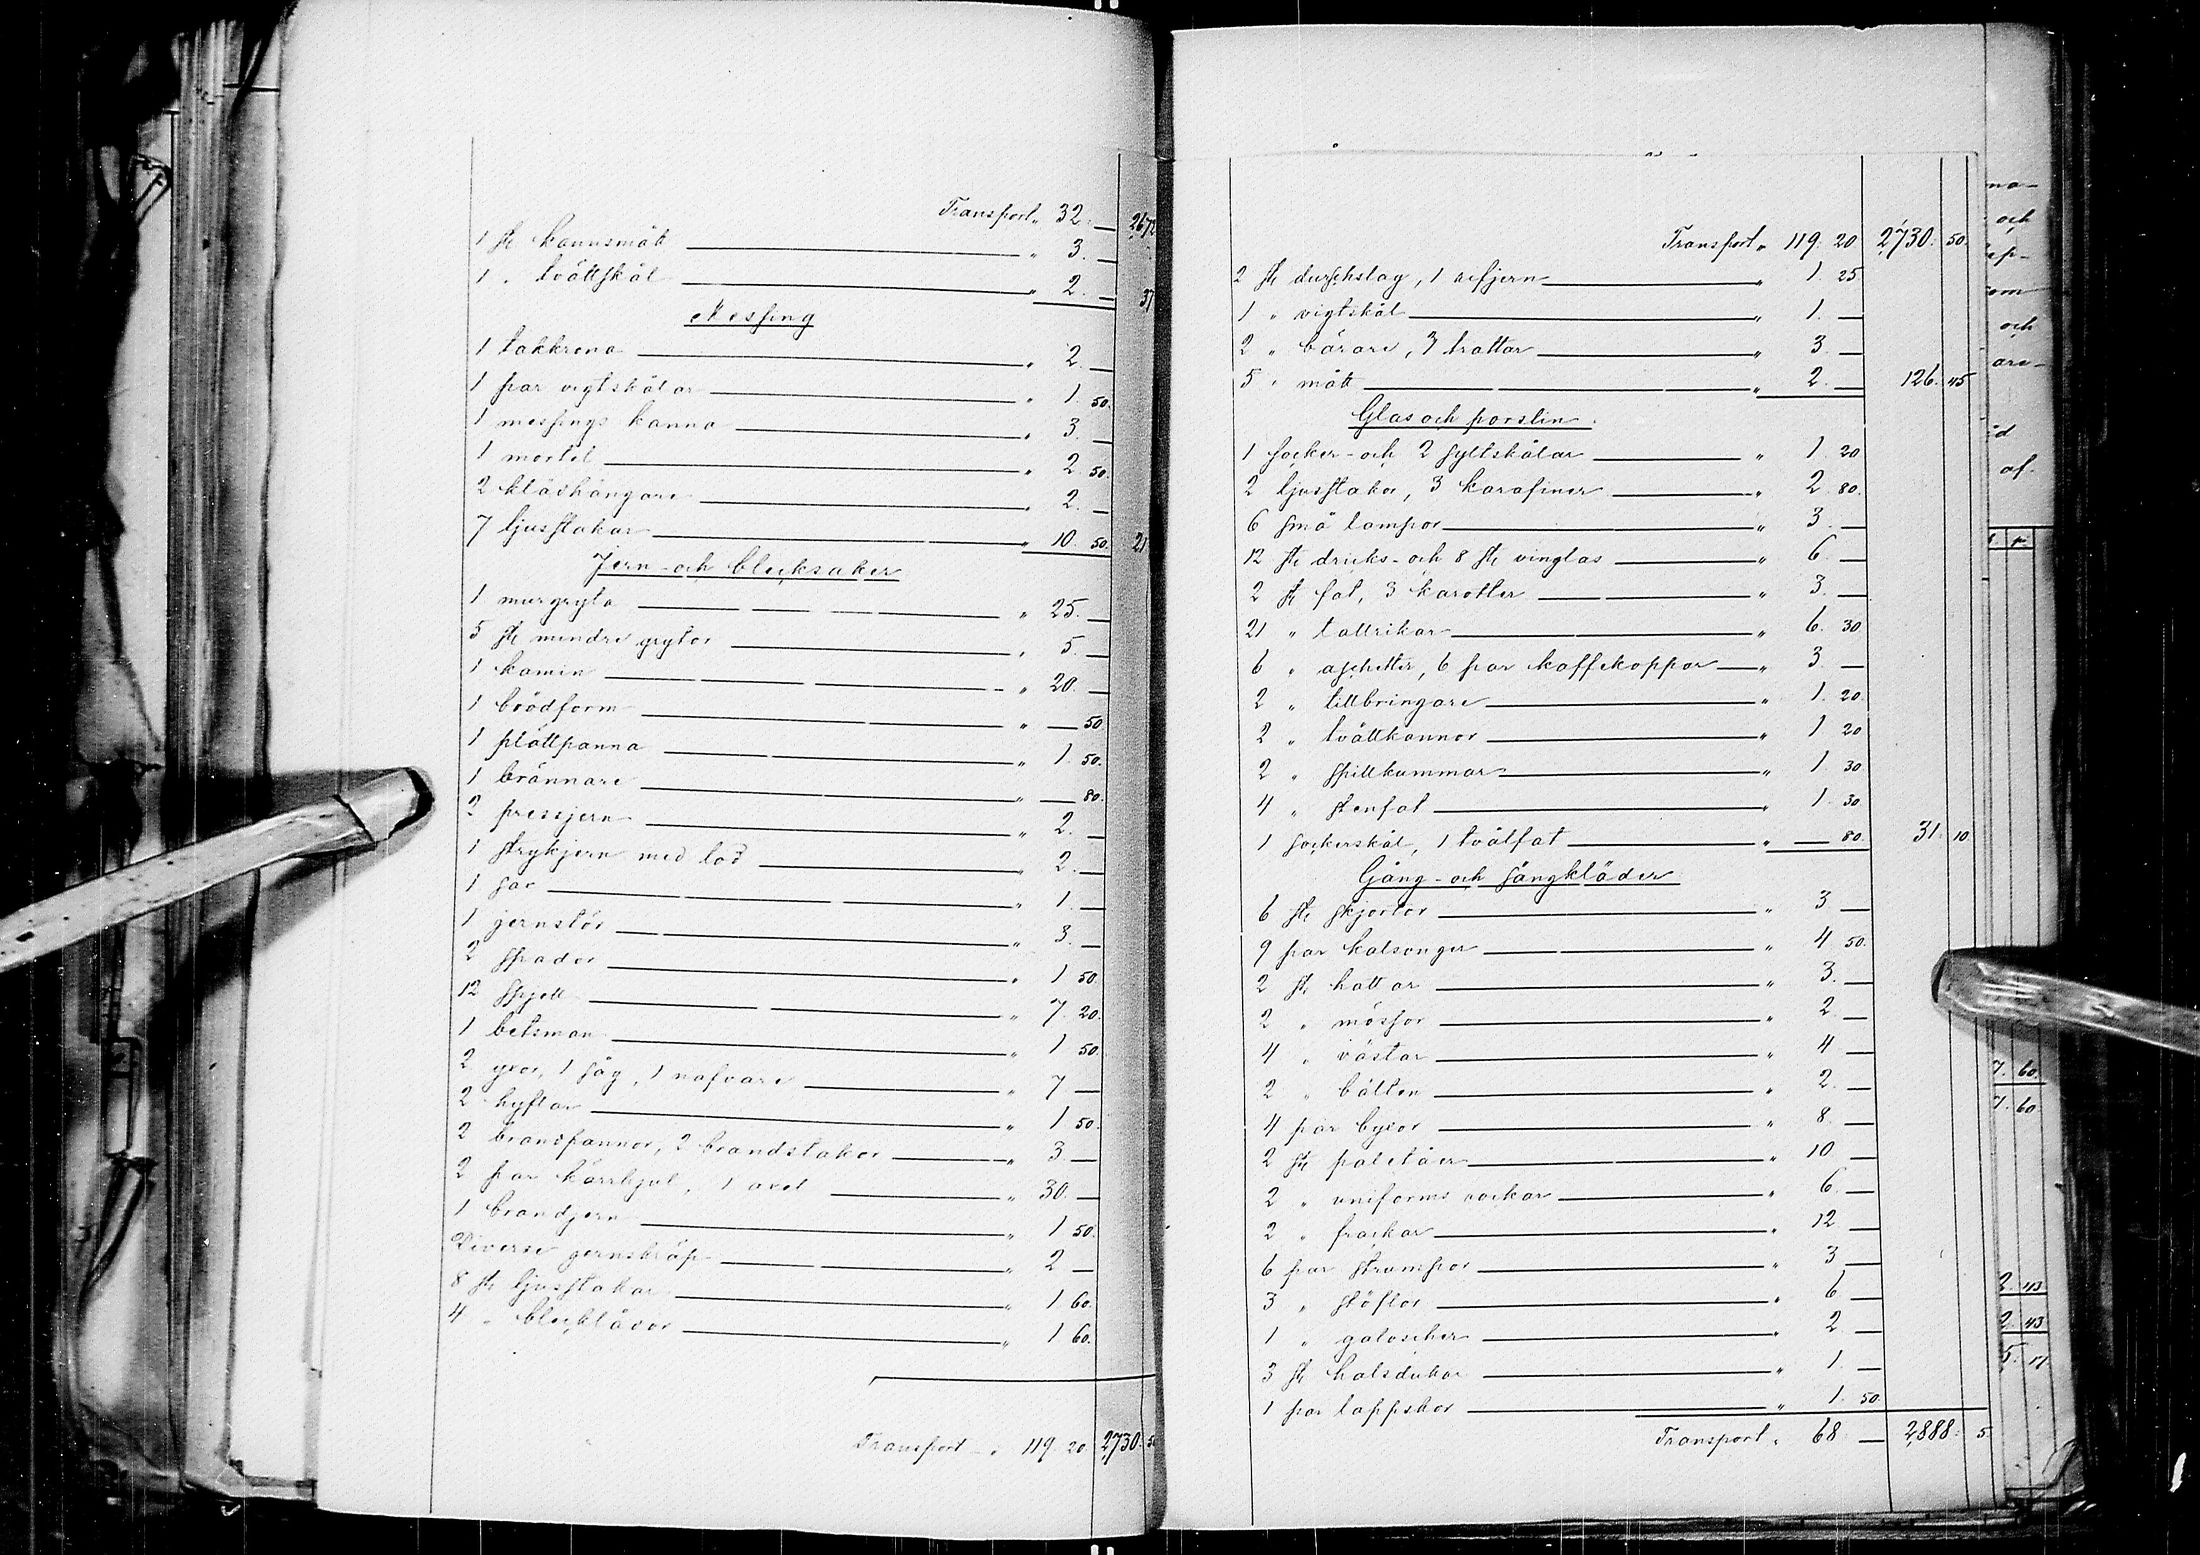 Transport " 32. — 2672
1 st kannsmått " 3. —
1 " tvättskål " 2. — 37
Messing
1 takkrona " 2. —
1 par vigtskålar " 1. 50.
1 messings kanna " 3. —
1 mortel " 2. 50.
2 klädhängare " 2. —
7 ljusstakar " 10. 50. 21
Jern- och blecksaker
1 murgryta " 25. —
5 st mindre grytor " 5. —
1 kamin " 20. —
1 brödform " — 50
1 plättpanna " 1. 50.
1 brännare " — 80.
2 pressjern " 2. —
1 strykjern med lod " 2. —
1 " 1. —
1 jernstör " 3. —
2 spador " 1 50.
12 spjell " 7. 20.
1 betsman " 1 50.
2 yxor, 1 såg, 1 nafvare " 7 —
2 hyflar " 1 50.
2 brandpannor, 2 brandstakor " 3 —
2 par kärrhjul, 1 axel " 30. —
1 brandjern " 1 50.
Diverse jernskräp " 2 —
8 st ljusstakar " 1 60.
4 " " 1 60.
Transport " 119. 20. 2,730. 50
Transport " 119. 20 2,730. 50.
2 st durchslag, 1 refjern " 1. 25
1 " vigtskål " 1. —
2 " bärare, 3 trattar " 3. —
5 " mått " 2. — 126. 45
Glas och porslin.
1 socker- och 2 syltskålar " 1. 20
2 ljusstakar, 3 karafiner " 2. 80.
6 små lampor " 3. —
12 st dricks- och 8 st vinglas " 6. —
2 st fat, 3 karotter " 3. —
21 " tallrikar " 6. 30
6 " aschetter, 6 par kaffekoppar " 3. —
2 " tillbringare " 1. 20
2 " tvättkannor " 1 20
2 " spillkummar " 1. 30
4 " stenfat " 1. 30
1 sockerskål, 1 tvålfat " — 80. 31. 10
Gång- och sängkläder
6 st skjortor " 3 —
9 par kalsonger " 4 50.
2 st hattar " 3. —
2 " mössor " 2. —
4 " västar " 4 —
2 " bälten " 2. —
4 par byxor " 8. —
2 st paletåer " 10. —
2 " uniforms rockar " 6. —
2 " frackar " 12 —
6 par strumpor " 3 —
3 " stöflor " 6 —
1 " galoscher " 2 —
3 st halsdukar " 1. —
1 par lappskor " 1. 50.
Transport " 68 — 2,888. 5
na-
och
om
och
are-
id
af.
7. 60.
7. 60
2. 43
2. 43